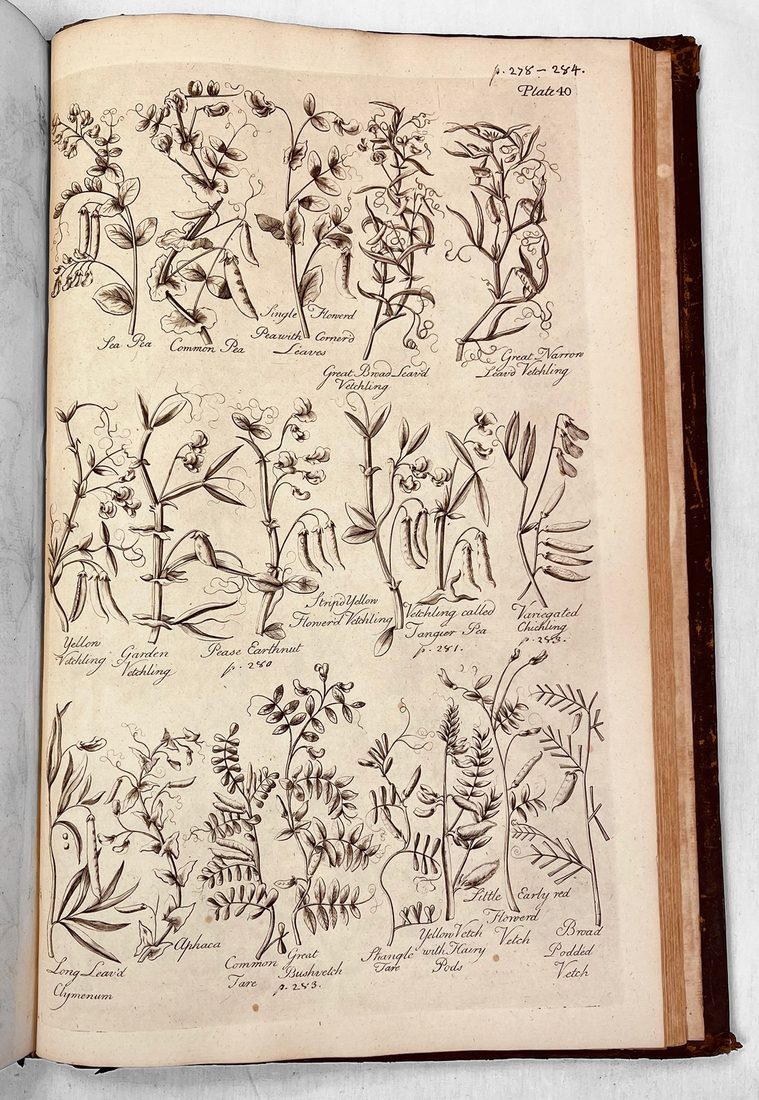 p. 278 – 284.
Plate 40
Sea Pea
Common Pea
Single Flowerd
Pea with Cornerd
Leaves
Great Broad Leav'd
Vetchling
Great Narrow
Leav'd Vetchling
Yellow
Vetchling
Garden
Vetchling
Pease Earthnut
p. 280
Strip'd Yellow
Flower'd Vetchling
Vetchling called
Tangier Pea
p. 281.
Variegated
Chichling
p. 283.
Long Leav'd
Clymenum
Aphaca
Common
Tare
Great
Bushvetch
p. 283.
Strangle
Tare
Yellow Vetch
with Hairy
Pods
Little Early red
Flowerd
Vetch
Broad
Podded
Vetch